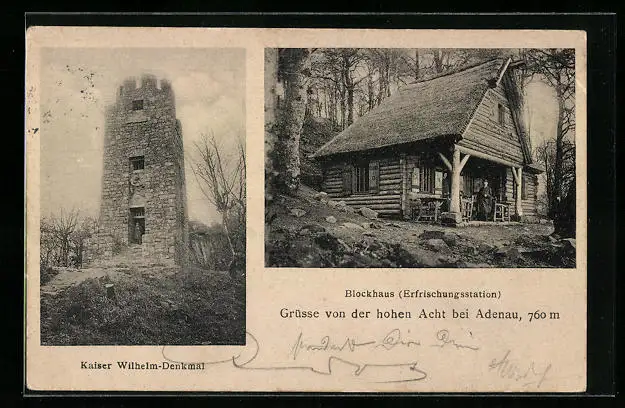 Blockhaus (Erfrischungsstation)
Grüsse von der hohen Acht bei Adenau, 760 m
Kaiser Wilhelm-Denkmal